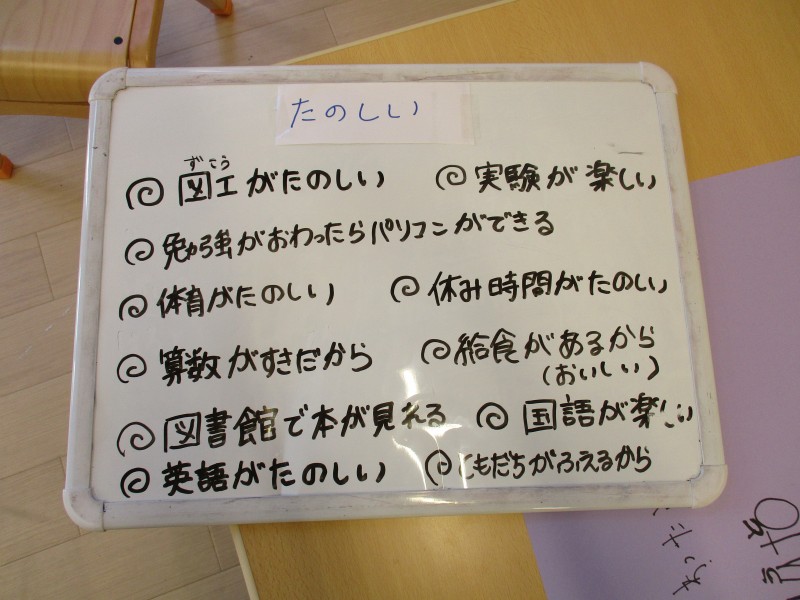 たのしい
ずこう
図工がたのしい
実験が楽しい
勉強がおわったらパソコンができる
体育がたのしい
休み時間がたのしい
算数がすきだから
給食があるから
(おいしい)
図書館で本が見れる
国語が楽しい
英語がたのしい
ともだちがふえるから